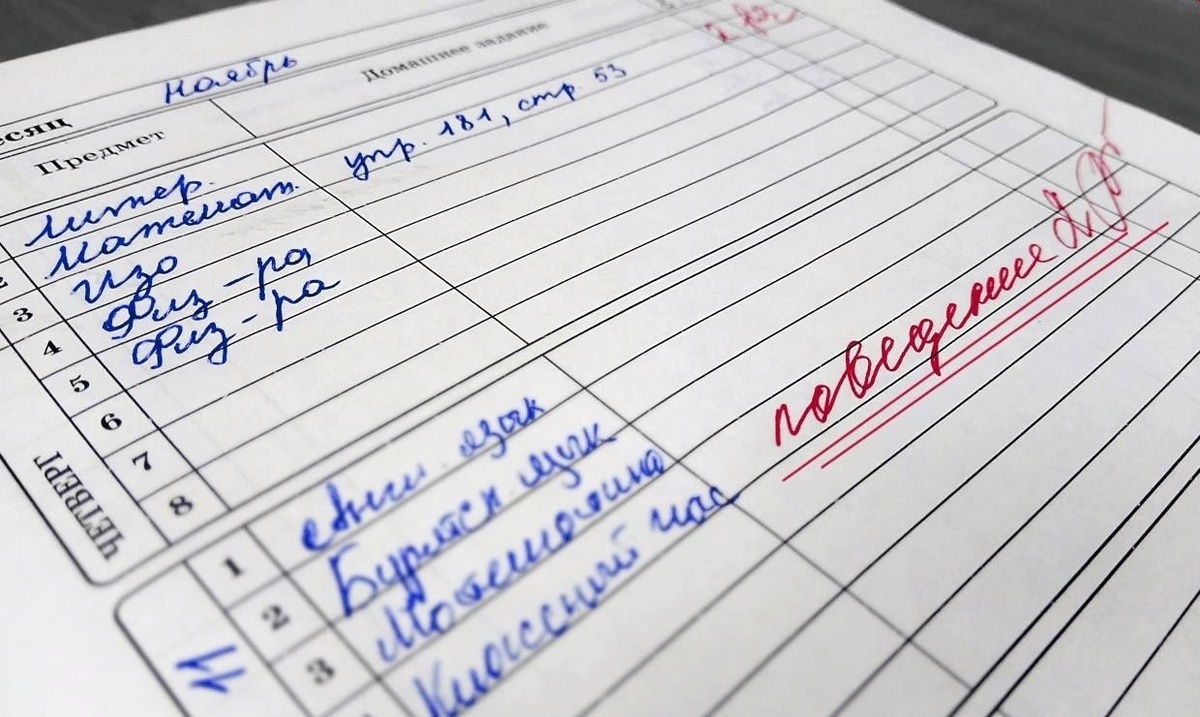 Ноябрь
есяц
Предмет
Домашнее задание
Литер.
Математ. упр. 181, стр. 53
2
Изо
3
Физ-ра
4
Физ-ра
5
6
7
8
ЧЕТВЕРГ
поведение 2
1 Англ. язык
2 Бурятск. язык
3 Математика
Классный час
11